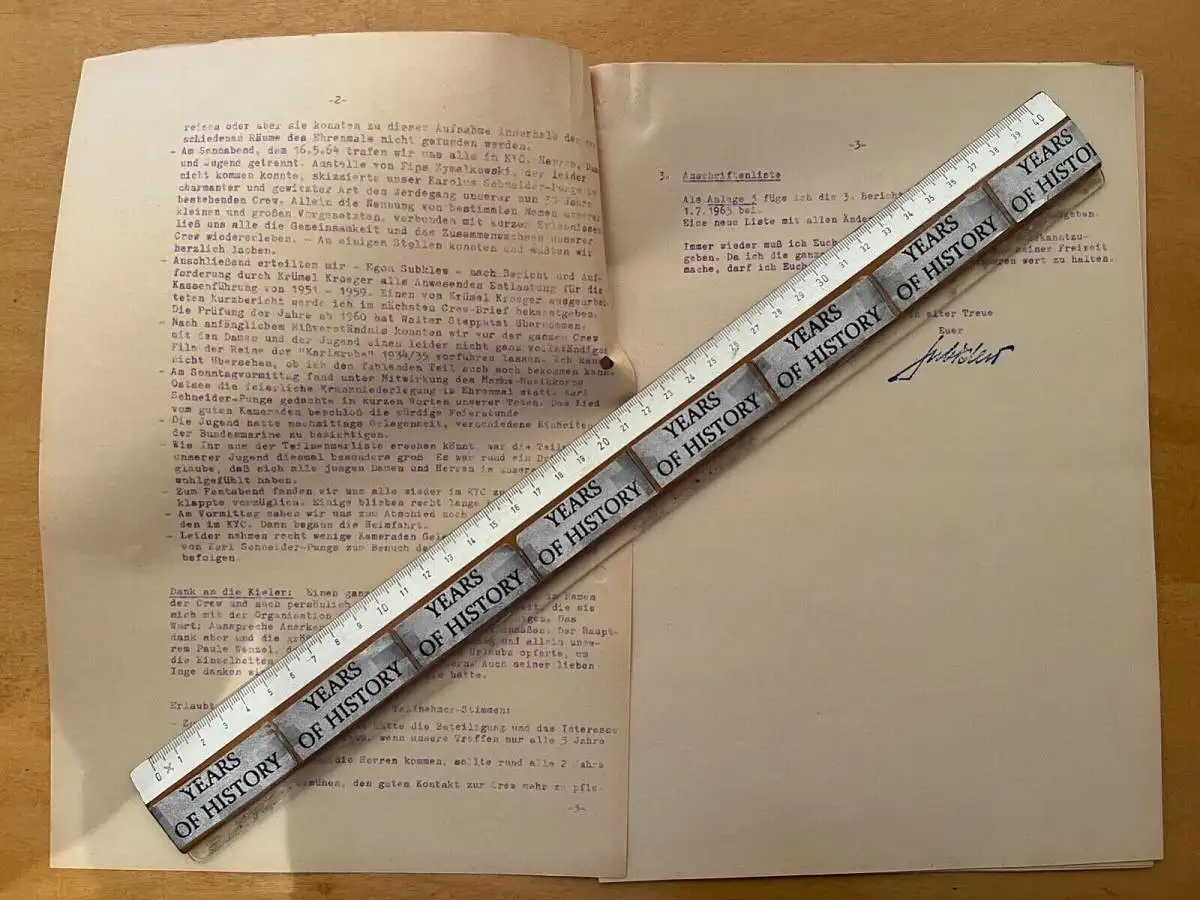 -2-
reisen oder aber sie konnten zu dieser Aufnahme innerhalb der
schiedenen Räume des Ehrenmals nicht gefunden werden.
- Am Sonnabend, dem 16.5.64 trafen wir uns alle im KYC. Herren, Dam
und Jugend getrennt. Anstelle von Fips Zymalkowski, der leider
nicht kommen konnte, skizzierte unser Karolus Schneider-Pungs in
charmanter und gewitzter Art den Werdegang unserer nun 30 Jahre
bestehenden Crew. Allein die Nennung von bestimmten Namen unserer
kleinen und großen Vorgesetzten, verbunden mit kurzen Erlebnissen
ließ uns alle die Gemeinsamkeit und das Zusammenwachsen unserer
Crew wiedererleben. - An einigen Stellen konnten und mußten wir
herzlich lachen.
- Anschließend erteilten mir - Egon Subklew - nach Bericht und Auf-
forderung durch Krümel Kroeger alle Anwesenden Entlastung für die
Kassenführung von 1951 - 1959. Einen von Krümel Kroeger ausgearbei-
teten Kurzbericht werde ich im nächsten Crew-Brief bekanntgeben.
Die Prüfung der Jahre ab 1960 hat Walter Steppat übernommen.
- Nach anfänglichem Mißverständnis konnten wir vor der ganzen Crew
mit den Damen und der Jugend einen leider nicht ganz vollständigen
Film der Reise der "Karlsruhe" 1934/35 vorführen lassen. Ich kann
nicht übersehen, ob ich den fehlenden Teil auch noch bekommen kann.
- Am Sonntagvormittag fand unter Mitwirkung des Marine-Musikkorps
Ostsee die feierliche Kranzniederlegung im Ehrenmal statt. Karl
Schneider-Pungs gedachte in kurzen Worten unserer Toten. Das Lied
vom guten Kameraden beschloß die würdige Feierstunde
- Die Jugend hatte nachmittags Gelegenheit, verschiedene Einheiten
der Bundesmarine zu besichtigen.
- Wie Ihr aus der Teilnehmerliste ersehen könnt, war die Teil
unserer Jugend diesmal besonders groß. Es war rund ein
glaube, daß sich alle jungen Damen und Herren in unsere
wohlgefühlt haben.
- Zum Festabend fanden wir uns alle wieder im KYC
klappte vorzüglich. Einige blieben recht lange
- Am Vormittag sahen wir uns zum Abschied noch
den im KYC. Dann begann die Heimfahrt.
- Leider nahmen recht wenige Kameraden
von Karl Schneider-Pungs zum Besuch
befolgen.
Dank an die Kieler: Einen ganz im Namen
der Crew und auch persönlich die sie
sich mit der Organisation Das
Wort: Aussprache Der Haupt-
dank aber und die und allein unse-
rem Paule Wenzel, Urlaubs opferte, um
die Einzelheiten Auch seiner lieben
Inge danken hatte.
Erlaubt Teilnehmer-Stimmen:
- die Beteiligung und das Interesse
wenn unsere Treffen nur alle 5 Jahre
die Herren kommen, sollte rund alle 2 Jahre
den guten Kontakt zur Crew mehr zu pfle-
-3-
-3-
3. Anschriftenliste
Als Anlage 3 füge ich die 3. Bericht
1.7.1963 bei.
Eine neue Liste mit allen
Immer wieder muß ich Euch bekanntzu-
geben. Da ich die ganze meiner Freizeit
mache, darf ich Euch wert zu halten.
In alter Treue
Euer
Subklew
0 1 2 3 4 5 6 7 8 9 10 11 12 13 14 15 16 17 18 19 20 21 22 23 24 25 26 27 28 29 30 31 32 33 34 35 36 37 38 39 40
YEARS
OF HISTORY
YEARS
OF HISTORY
YEARS
OF HISTORY
YEARS
OF HISTORY
YEARS
OF HISTORY
YEARS
OF HISTORY
YEARS
OF HISTORY
YEARS
OF HISTO